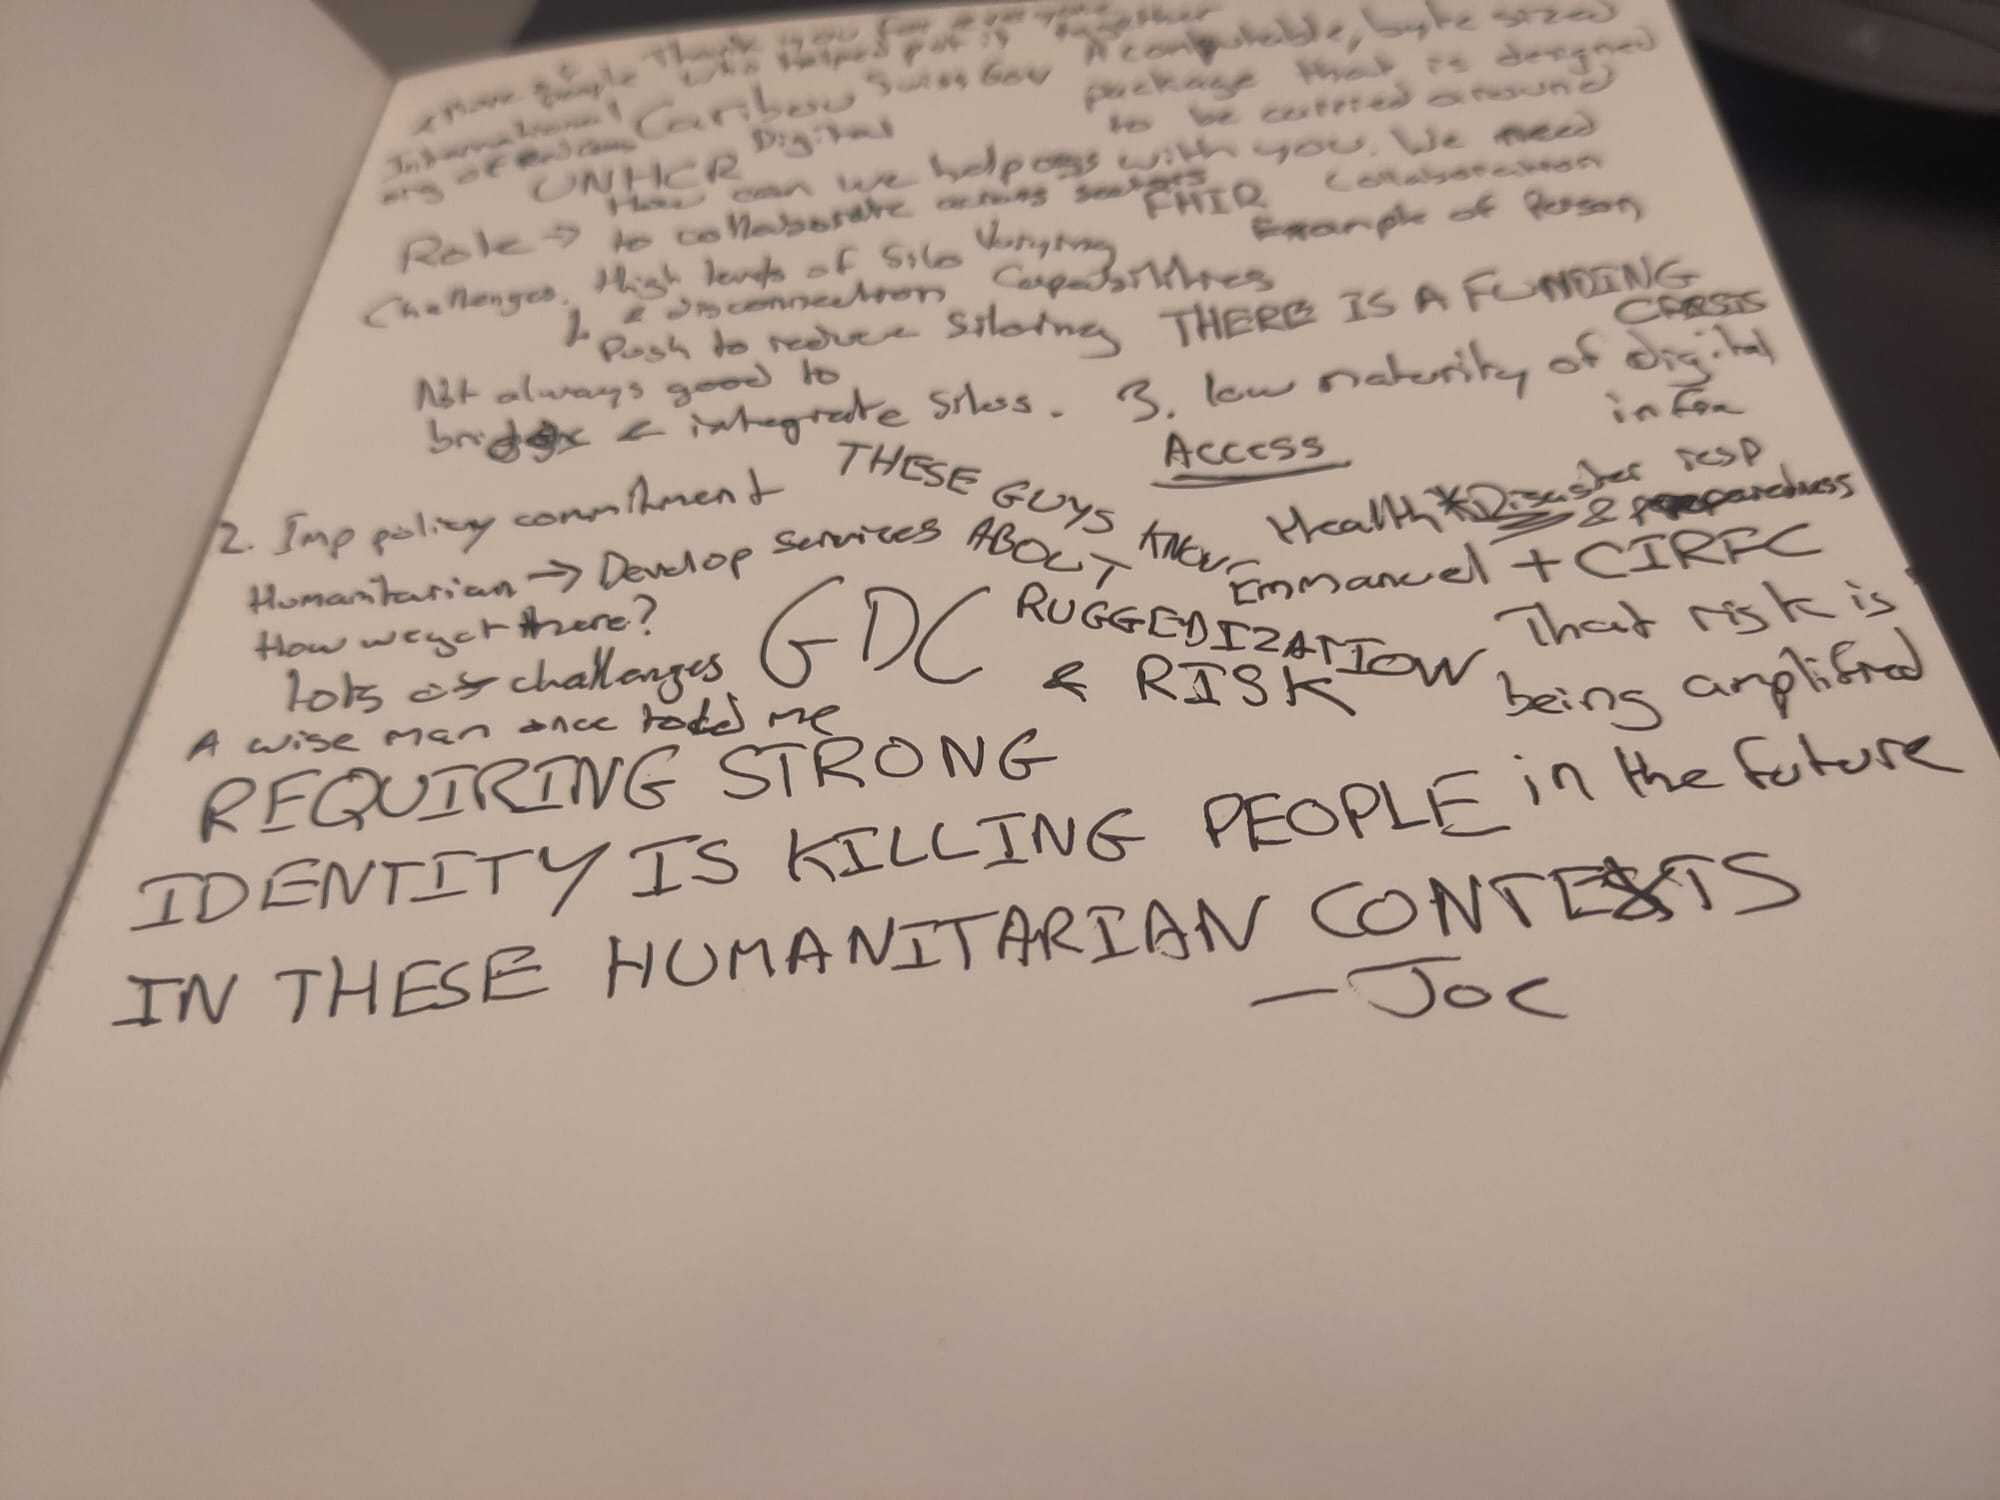 Thank you for
people who helped put it together
International Caribou Swiss Gov A computable, byte sized
org of Digital package that is designed
UNHCR to be carried around
How can we help orgs with you. We need
Role → to collaborate across sectors FHIR Collaboration
Challenges. High levels of Silo Varying Example of Person
1. & disconnection Capabilities
Push to reduce Siloing THERE IS A FUNDING
CRISIS
Not always good to
bridge & integrate silos. 3. low maturity of digital
infra
Access
2. Imp policy commitment THESE GUYS KNOW Health * Disaster resp
& preparedness
Humanitarian → Develop services ABOUT Emmanuel + CIRFC
How we get there? GDC RUGGEDIZATION That risk is
lots of challenges & RISK being amplified
A wise man once told me
REQUIRING STRONG
IDENTITY IS KILLING PEOPLE in the future
IN THESE HUMANITARIAN CONTEXTS
- Joe